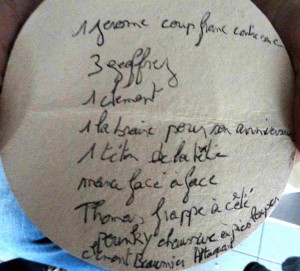 1 jerome coup franc contre son
3 geoffrey
1 clement
1 la braise pour son anniversaire
1 titon de la tête
marc face à face
Thomas frappe à côté
pounky chaussure
clement Beaumier Attaquant